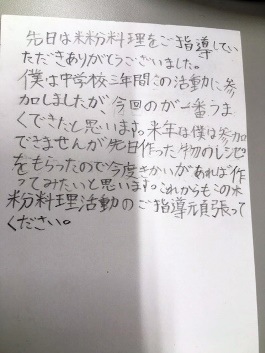 先日は米粉料理をご指導してい
ただきありがとうございました。
僕は中学校三年間この活動に参
加しましたが、今回のが一番うま
くできたと思います。来年は僕は参加
できませんが先日作った物のレシピ
をもらったので今度きかいがあれば作
ってみたいと思います。これからもこの米
粉料理活動のご指導頑張って
ください。